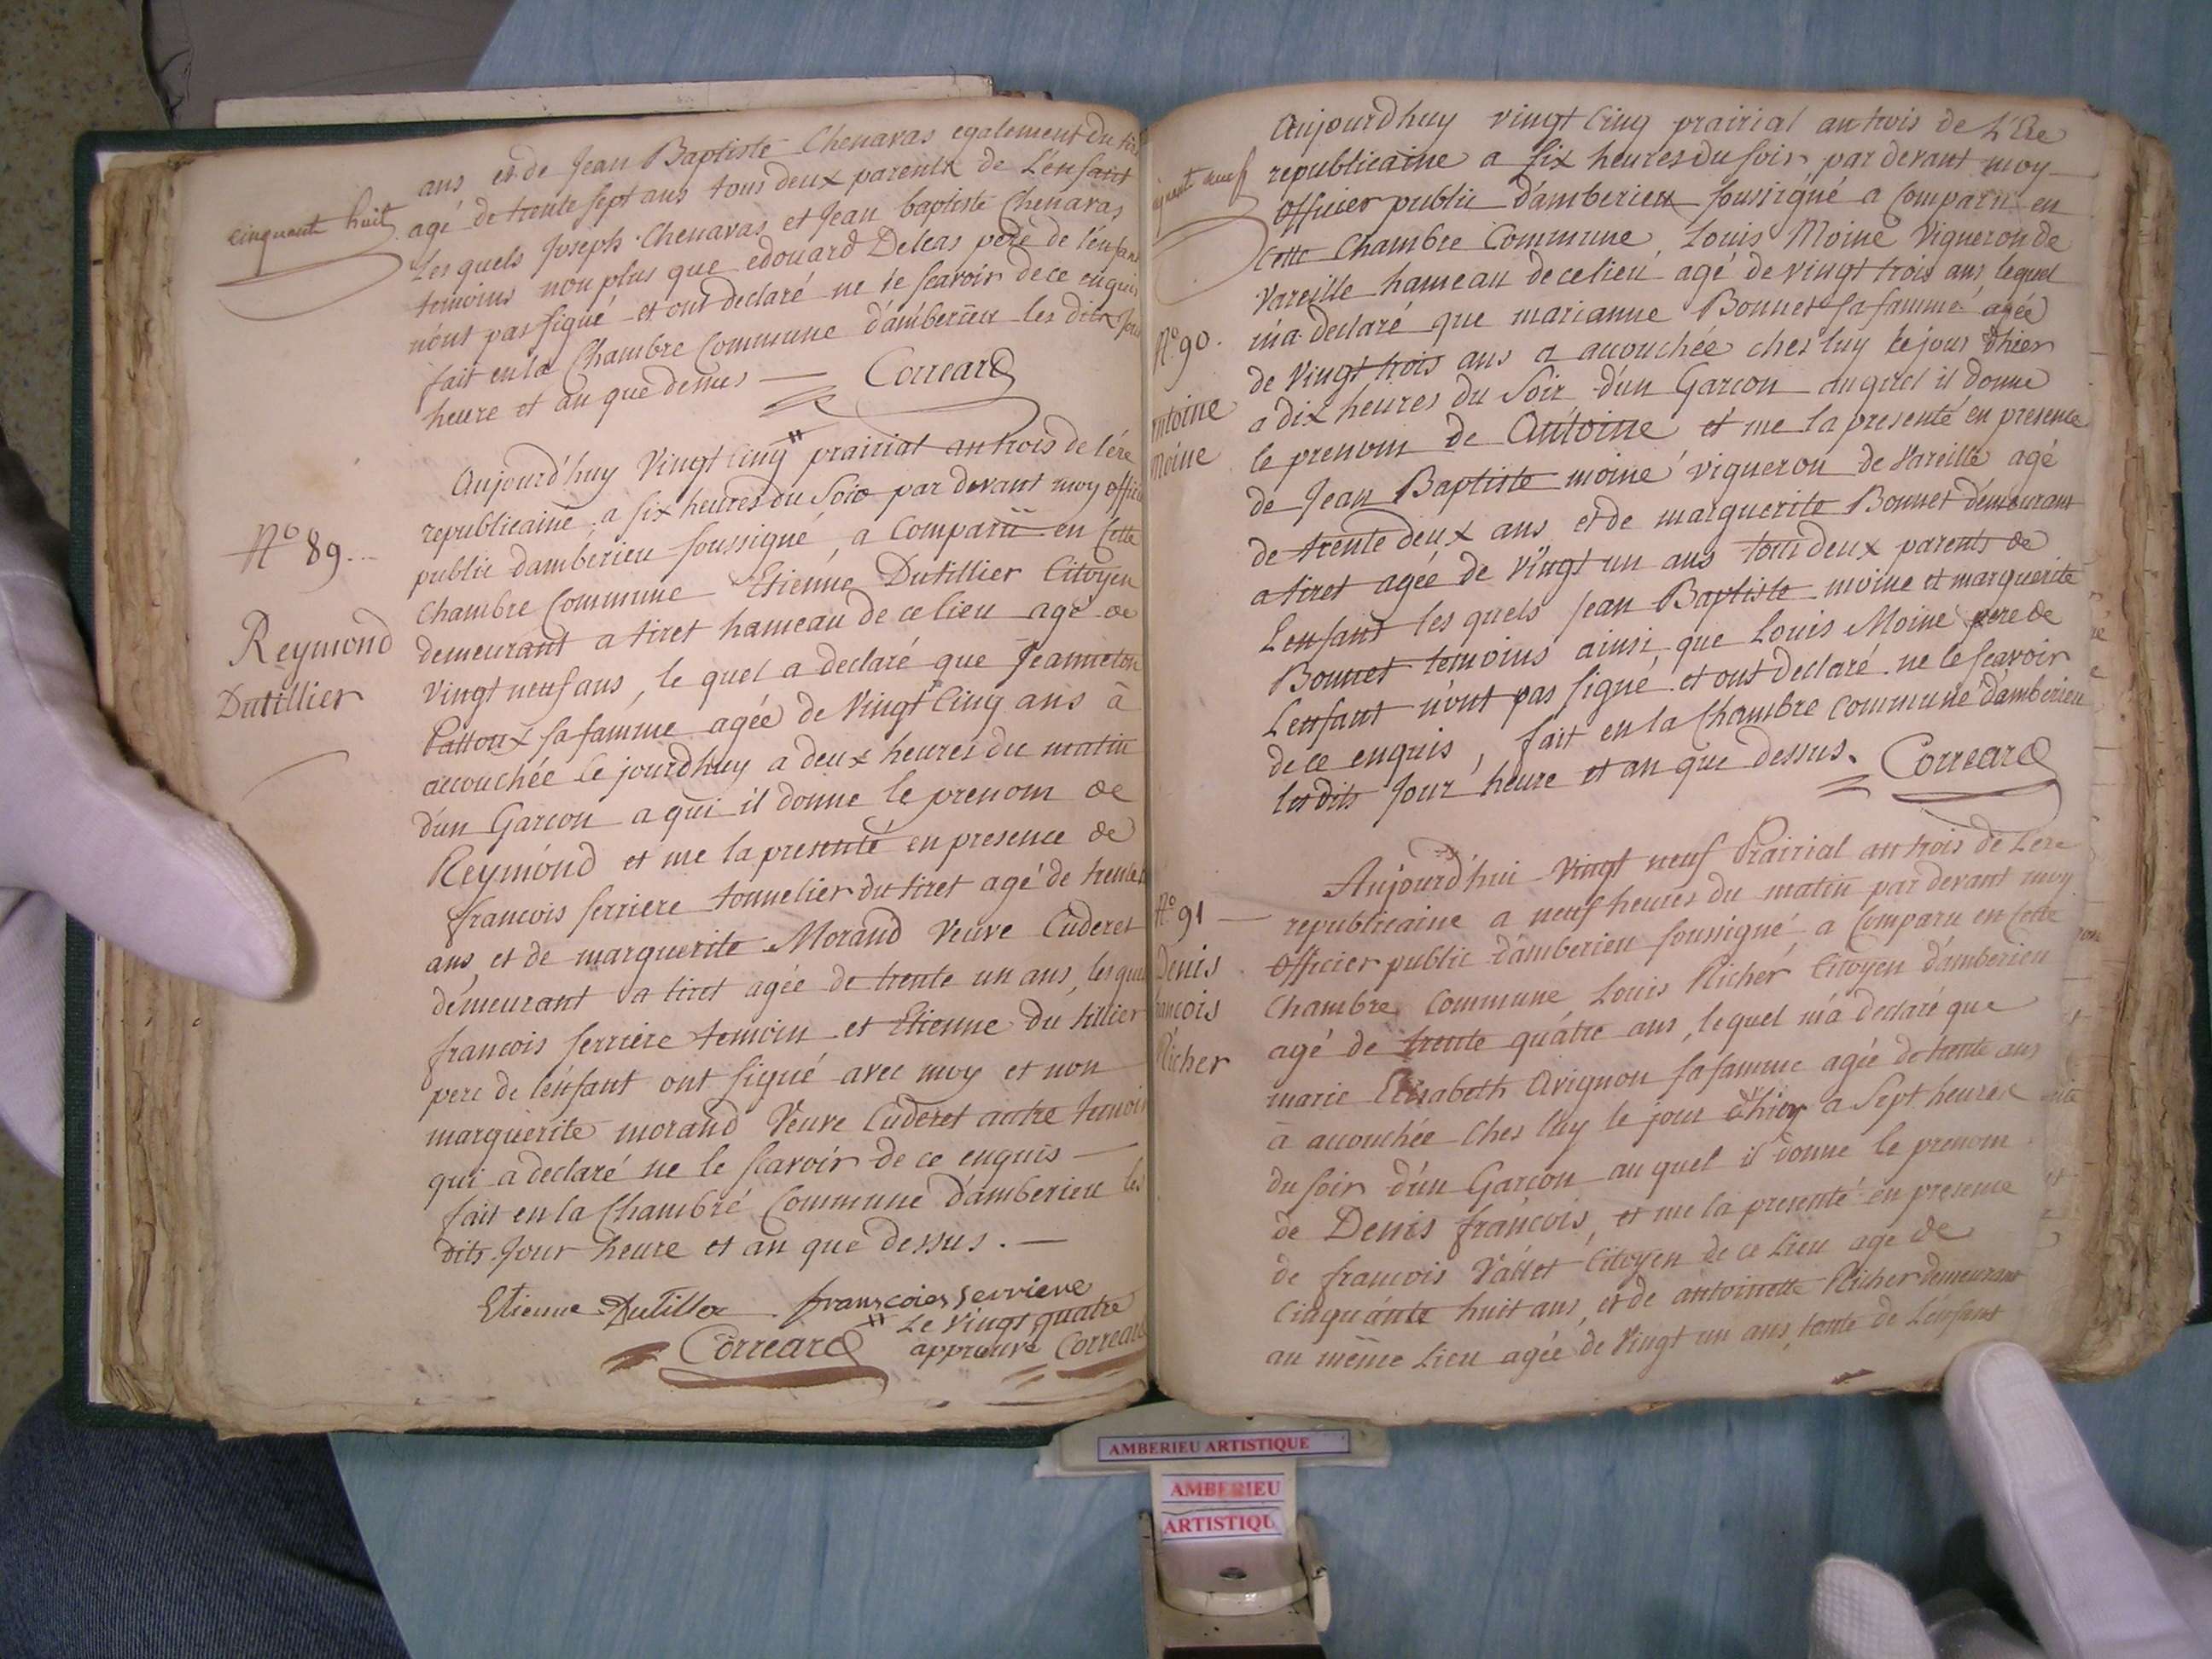 cinquante huit
ans et de Jean Baptiste Chenavas egalement du
agé de trente sept ans tous deux parents de L'enfant
Les quels Joseph Chenavas et Jean baptiste Chenavas
temoins non plus que edouard Deleas pere de l'enfant
n'ont pas signé et ont declaré ne le scavoir de ce enquis
fait en la Chambre Commune d'amberieu les dits jour
heure et an que dessus Correard
N° 89
Reymond
Dutillier
Aujourd'huy Vingt Cinq prairial an trois de l'ére
republicaine a six heures du Soir par devant moy offi
public d'amberieu soussigné, a Comparu en Cette
Chambre Commune Etienne Dutillier Citoyen
demeurant a tiret hameau de ce lieu agé de
Vingt neuf ans, le quel a declaré que Jeanneton
Pattoux sa famme agée de Vingt Cinq ans à
accouchée le jourdhuy a deux heures du matin
d'un Garcon a qui il donne le prenom de
Reymond et me la presenté en presence de
francois serriere tonnelier du tiret agé de trente
ans et de marguerite Morand Veuve Cuderet
demeurant a tiret agée de trente un ans, les que
francois serriere temoin et Etienne Du tillier
pere de l'enfant ont signé avec moy et non
marguerite morand Veuve Cuderet autre temoin
qui a declaré ne le scavoir de ce enquis
fait en la Chambre Commune d'amberieu les
dits Jour heure et an que dessus.
Etienne Dutillier francoies serriere
Le Vingt quatre
Correard approuvé Correard
Aujourdhuy vingt Cinq prairial an trois de L'Ere
republicaine a six heures du soir par devant moy
officier public d'amberieu soussigné a Comparu en
Cette Chambre Commune, Louis Moine Vigneron de
Vareille hameau de ce lieu agé de vingt trois ans lequel
N° 90.
m'a declaré que marianne Bonnet sa famme agée
de Vingt trois ans a accouchée ches luy le jour d'hier
a dix heures du Soir d'un Garcon auquel il donne
ntoine
moine
le prenom de Antoine et me la presenté en presence
de Jean Baptiste moine vigneron de Vareille agé
de trente deux ans et de marguerite Bonnet demeurant
a tiret agée de Vingt un ans tous deux parents de
Lenfant les quels Jean Baptiste moine et marguerite
Bonnet temoins ainsi que Louis Moine pere de
Lenfant n'ont pas signé et ont declaré ne le scavoir
de ce enquis, fait en la Chambre Commune d'amberieu
les dits Jour heure et an que dessus. Correard
N° 91
Denis
rancois
Richer
Aujourd'hui Vingt neuf Prairial an trois de L'ere
republicaine a neuf heures du matin par devant moy
officier public d'amberieu soussigné, a Comparu en Cette
Chambre Commune Louis Richer Citoyen d'amberieu
agé de trente quatre ans, lequel m'a declaré que
marie Elisabeth Avignon sa famme agée de trente ans
à accouchée Ches luy le jour d'hier a Sept heures
du soir d'un Garcon au quel il donne le prenom
de Denis francois, et me la presenté en presence
de francois Vallet Citoyen de ce Lieu agé de
Cinquante huit ans, et de antoinette Richer demeurant
au même Lieu agée de Vingt un ans, tante de L'enfant
AMBERIEU ARTISTIQUE
AMBERIEU
ARTISTIQU